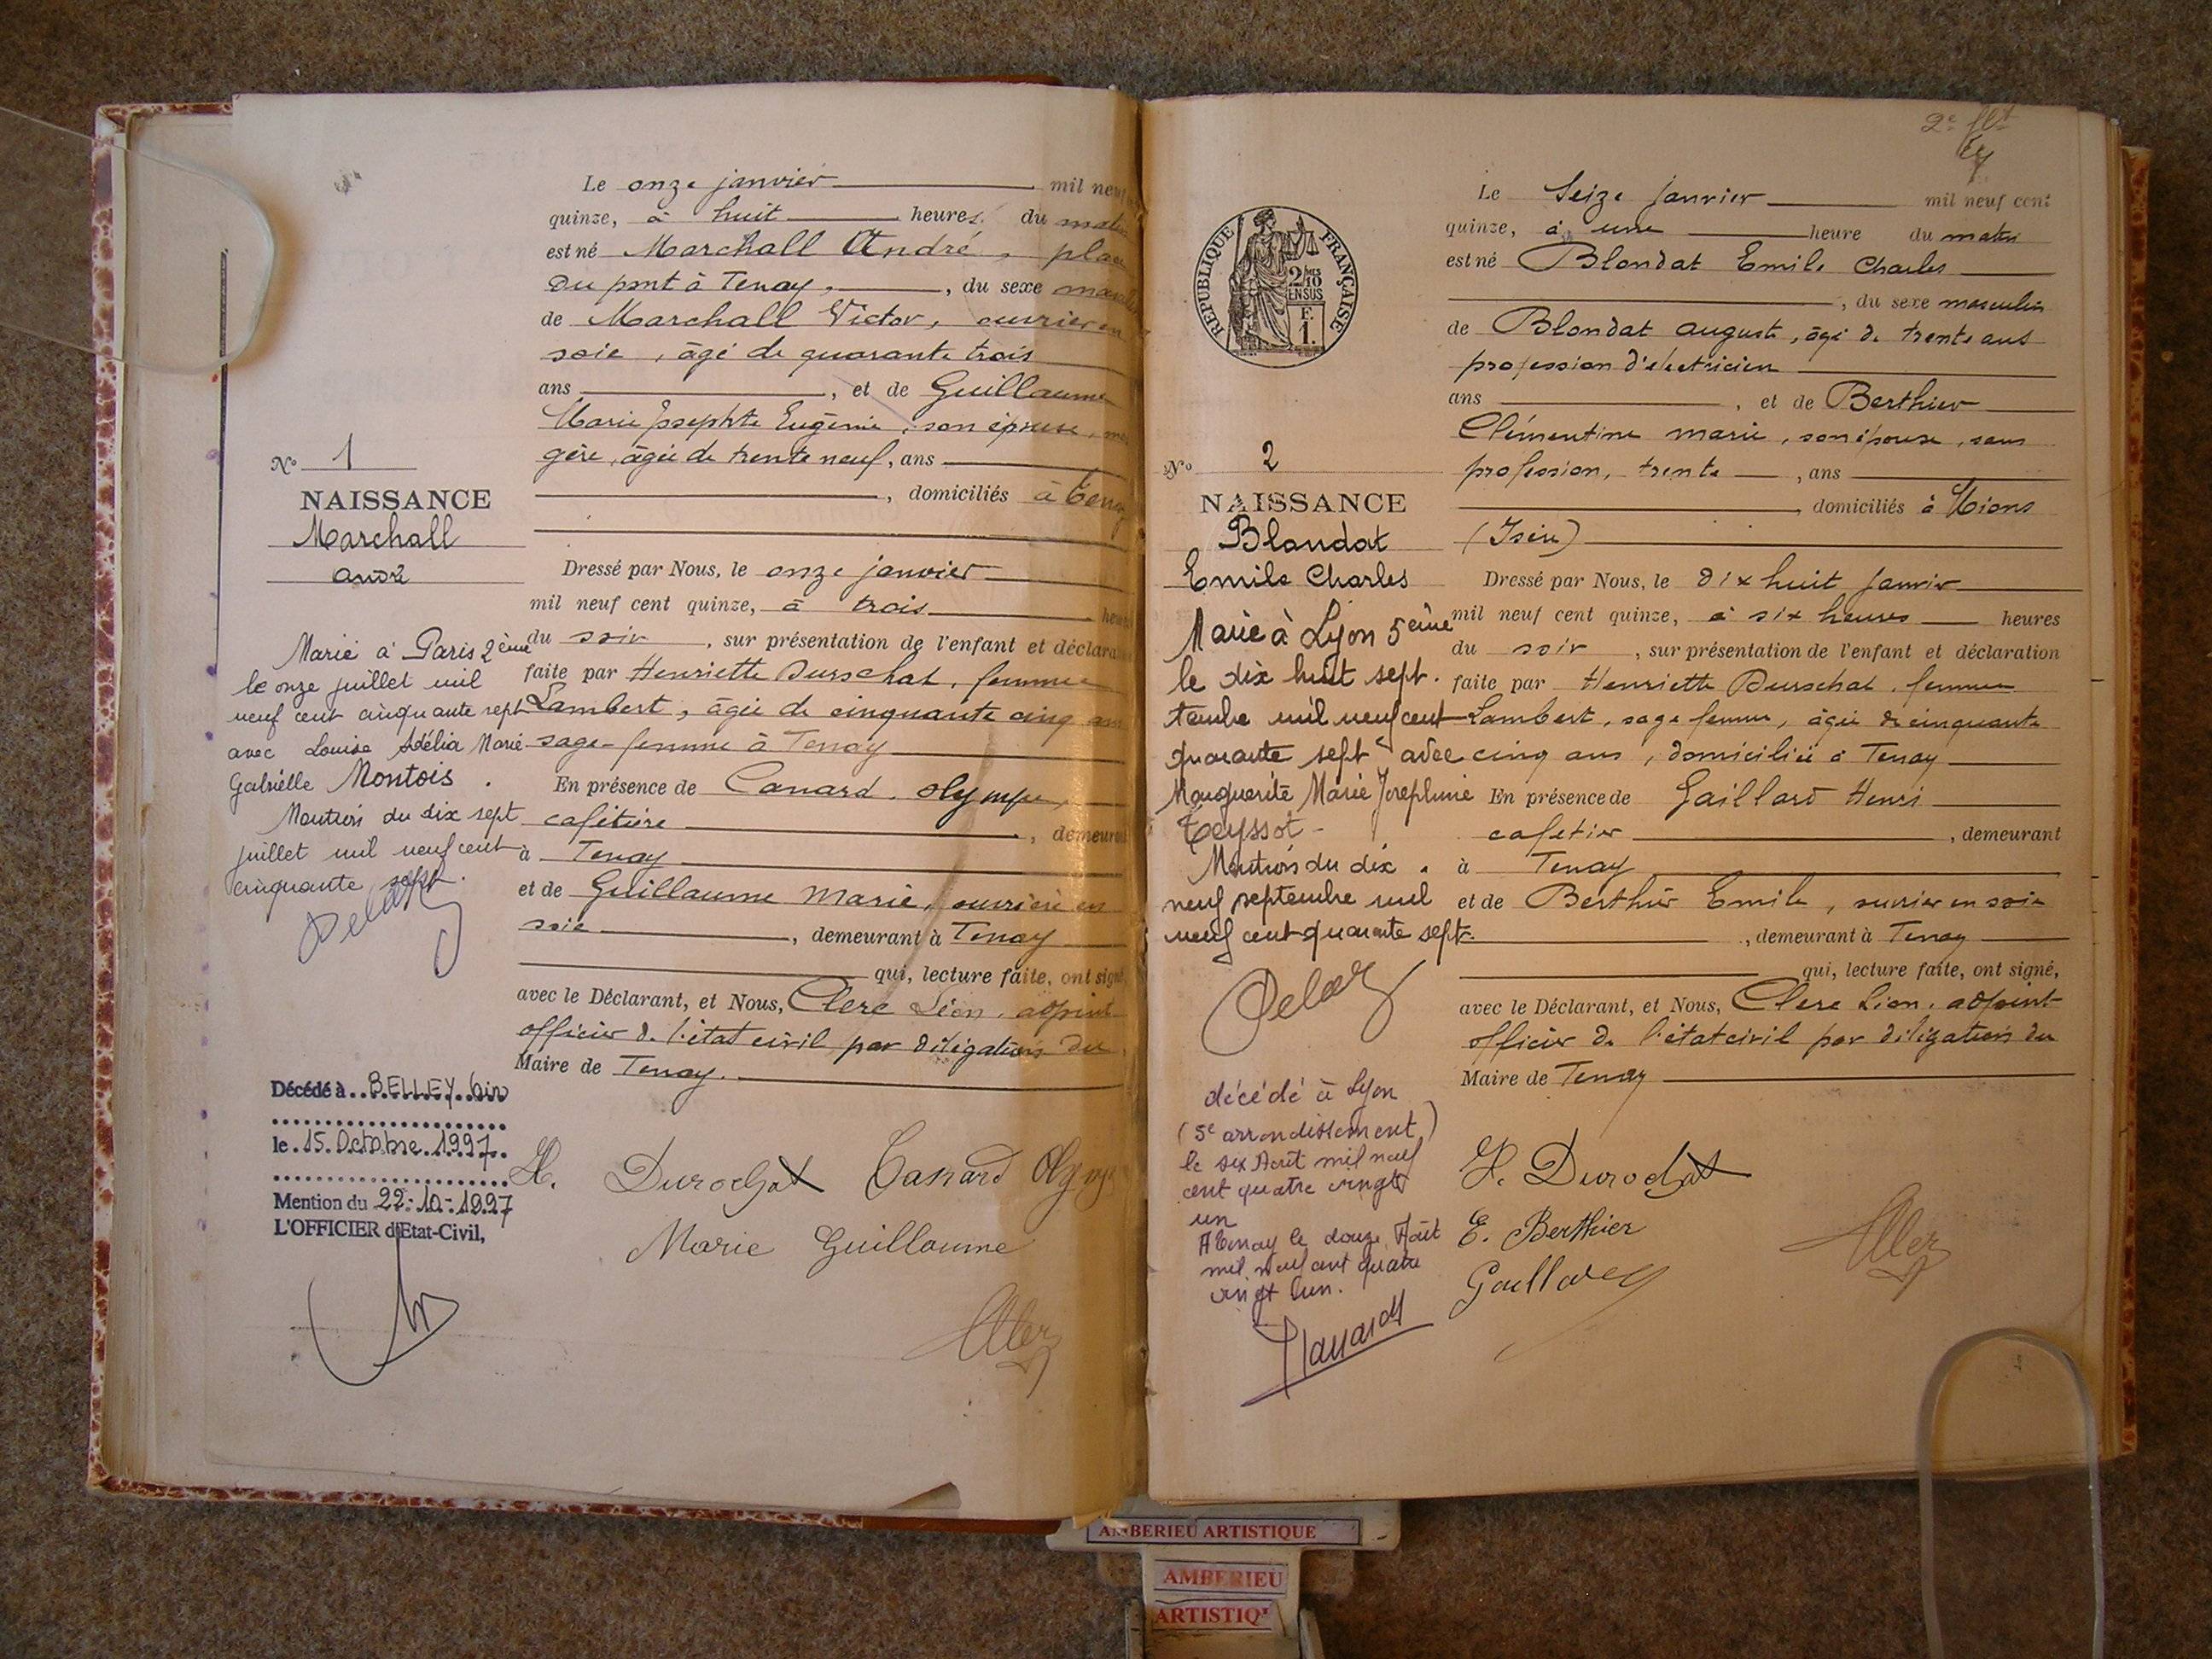 Le onze janvier mil neuf
quinze, à huit heures du matin
est né Marchall André, place
du pont à Tenay, , du sexe masculin
de Marchall Victor, ouvrier en
soie, âgé de quarante trois
ans , et de Guillaume
Marie Josephte Eugénie, son épouse, mé
gère, âgée de trente neuf, ans
, domiciliés à Tenay
No 1
NAISSANCE
Marchall
André
Dressé par Nous, le onze janvier
mil neuf cent quinze, à trois heures
du soir , sur présentation de l'enfant et déclara
faite par Henriette Durochat, femme
Lambert, âgée de cinquante cinq ans
sage-femme à Tenay
En présence de Canard Olympe,
cafetière , demeurant
à Tenay
et de Guillaume Marie, ouvrière en
soie , demeurant à Tenay
qui, lecture faite, ont signé,
avec le Déclarant, et Nous, Clerc Léon, adjoint
officier de l'état civil par délégation du
Maire de Tenay.
Marié à Paris 2ème
le onze juillet mil
neuf cent cinquante sept
avec Louise Adélia Marie
Gabrielle Montois.
Mention du dix sept
juillet mil neuf cent
cinquante sept.
Décédé à BELLEY Ain
le 15 Octobre 1997
Mention du 22-10-1997
L'OFFICIER d'Etat-Civil,
H. Durochat Canard Olympe
Marie Guillaume
2e flt
RÉPUBLIQUE FRANÇAISE
2/10
EN SUS
F.
1.
Le Seize janvier mil neuf cent
quinze, à une heure du matin
est né Blondat Emile Charles
, du sexe masculin
de Blondat Auguste, âgé de trente ans
profession d'électricien
ans , et de Berthier
Clémentine Marie, son épouse, sans
profession, trente , ans
, domiciliés à Mions
(Isère)
No 2
NAISSANCE
Blondat
Emile Charles
Dressé par Nous, le dix huit janvier
mil neuf cent quinze, à six heures heures
du soir , sur présentation de l'enfant et déclaration
faite par Henriette Durochat, femme
Lambert, sage femme, âgée de cinquante
cinq ans, domiciliée à Tenay
En présence de Gaillard Henri
cafetier , demeurant
à Tenay
et de Berthier Emile, ouvrier en soie
, demeurant à Tenay
qui, lecture faite, ont signé,
avec le Déclarant, et Nous, Clerc Léon, adjoint
officier de l'état civil par délégation du
Maire de Tenay
Marié à Lyon 5ème
le dix huit sept.
tembre mil neuf cent
quarante sept avec
Marguerite Marie Josephine
Teyssot -
Mention du dix
neuf septembre mil
neuf cent quarante sept.
décédé à Lyon
(5e arrondissement)
le six Août mil neuf
cent quatre vingt
un
A Tenay le douze Août
mil neuf cent quatre
vingt un.
H. Durochat
E. Berthier
Gaillard
AMBERIEU ARTISTIQUE
AMBERIEU
ARTISTIQ